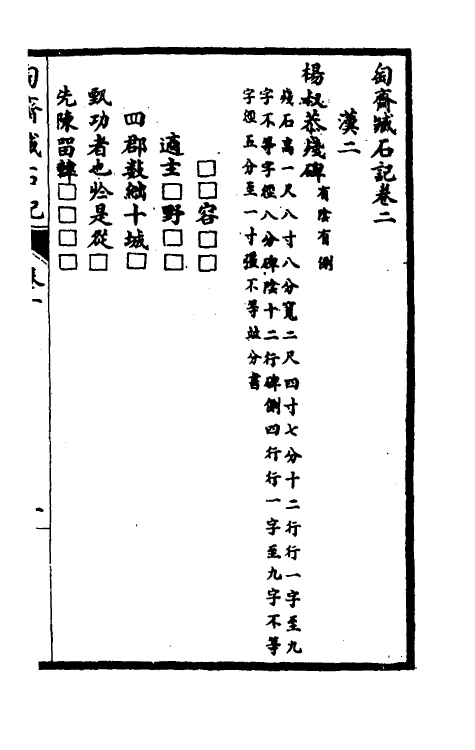 匋齋臧石記卷二
漢二
楊叔恭殘碑有陰有側
殘石高一尺八寸八分寬二尺四寸七分十二行行一字至九
字不等字徑八分碑陰十二行碑側四行行一字至九字不等
字徑五分至一寸彊不等竝分書
□□容□□
適主□野□□
四郡數絀十城□
甄功者也於是從□
先陳留韓□□□□
匋齋臧石記